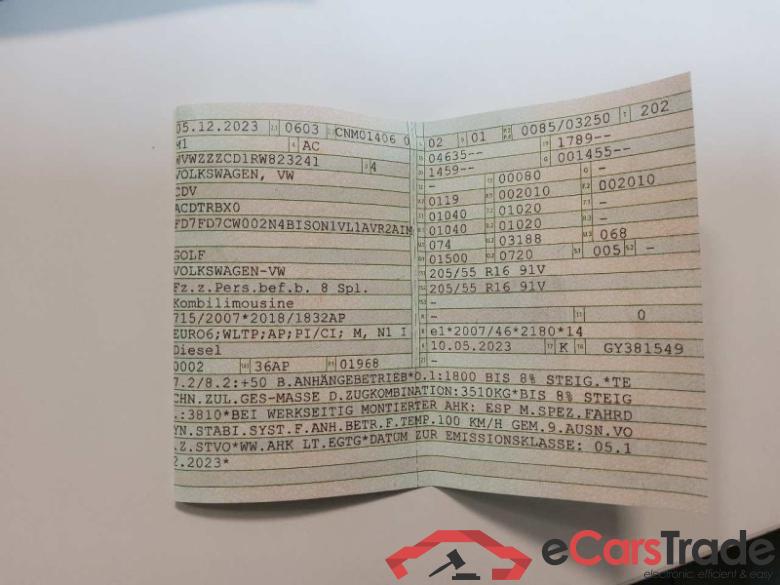 05.12.2023 0603 CNM01406 0
M1 AC
WVWZZZCD1RW823241 4
VOLKSWAGEN, VW
CDV
ACDTRBX0
FD7FD7CW002N4BISON1VL1AVR2AIM
GOLF
VOLKSWAGEN-VW
Fz.z.Pers.bef.b. 8 Spl.
Kombilimousine
715/2007*2018/1832AP
EURO6;WLTP;AP;PI/CI; M, N1 I
Diesel
0002 36AP 01968
02 01 0085/03250 202
04635-- 1789--
1459-- 001455--
- 00080 -
0119 002010 002010
01040 01020 -
01040 01020 -
074 03188 068
01500 0720 005 -
205/55 R16 91V
205/55 R16 91V
-
- 0
e1*2007/46*2180*14
10.05.2023 K GY381549
-
7.2/8.2:+50 B.ANHÄNGEBETRIEB*O.1:1800 BIS 8% STEIG.*TE
CHN.ZUL.GES-MASSE D.ZUGKOMBINATION:3510KG*BIS 8% STEIG
.:3810*BEI WERKSEITIG MONTIERTER AHK: ESP M.SPEZ.FAHRD
YN.STABI.SYST.F.ANH.BETR.F.TEMP.100 KM/H GEM.9.AUSN.VO
.Z.STVO*WW.AHK LT.EGTG*DATUM ZUR EMISSIONSKLASSE: 05.1
2.2023*
eCarsTrade
electronic, efficient & easy